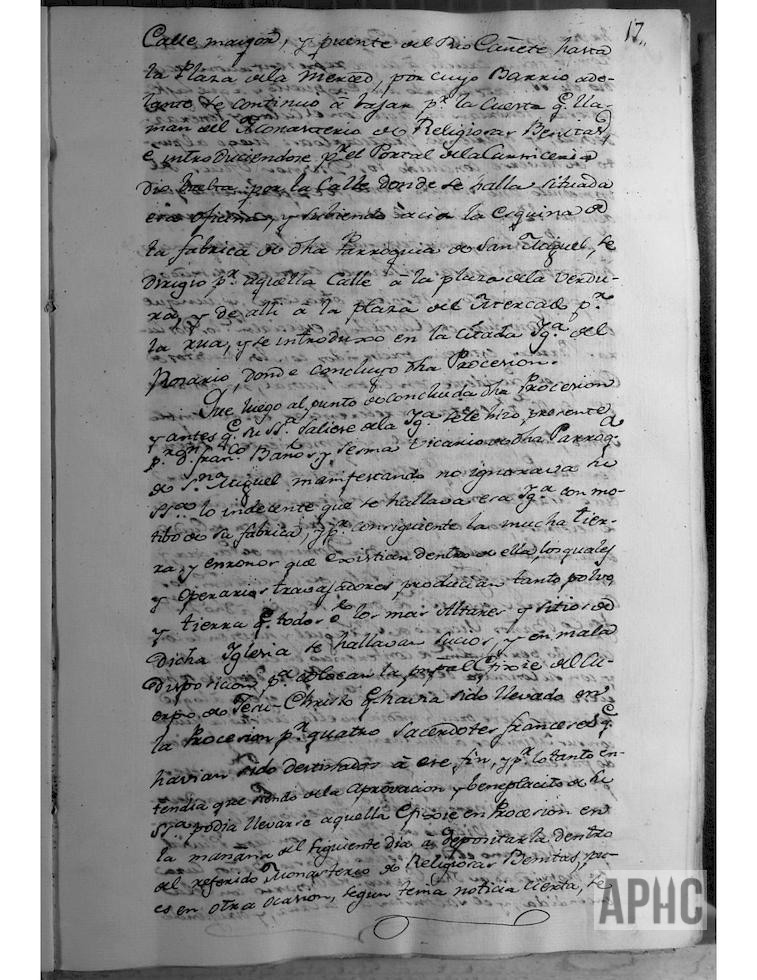 17,,
Calle maigor, y puente del Rio Cañete hasta
la Plaza de la Merced, por cuyo Barrio ade-
lante se continuo à bajar pr. la Cuesta q. lla-
man del Monasterio de Religiosas Benitas,
e introduciendose pr. el Portal de la Carniceria
dio buelta por la Calle donde se halla situada
esa oficina, y subiendo àcia la esquina de
la fabrica de dha Parroquia de San Miguel, se
dirigio pr. aquella Calle à la plaza de la Verdu-
ra, y de alli à la plaza del Mercado pr.
la rua, y se introduxo en la citada Yga. del
Rosario, donde concluyo dha Procesion.
Que luego al punto de concluida dha Procesion
y antes q. su SSa. saliese de la Yga. se le hizo presente
pr. Dn. Franco. Baños y Sesma Vicario de dha Parroqa.
de Sn. Miguel manifestando no ignorava su
SSa. lo indecente que se hallava esa Yga. con mo-
tibo de su fabrica, y pr. consiguiente la mucha tier-
ra, y enronos que existian dentro de ella, los quales
y Operarios travajadores producian tanto polvo
y tierra q. todos los mas Altares y sitios de
dicha Yglesia se hallavan sucios, y en mala
disposicion pa. colocar la Efixie del Cu-
erpo de Jesu-Christo q. havia sido llevado en
la Procesion pr. quatro Sacerdotes franceses q.
havian sido destinados à ese fin, y pr. lo tanto en-
tendia que siendo de la aprovacion y beneplacito de su
SSa. podia llevarse aquella Efixie en Procesion en
la mañana del siguiente dia à depositarla dentro
del referido Monasterio de Religiosas Benitas, pu-
es en otra ocasion, segun tenia noticia cierta, se
APHC